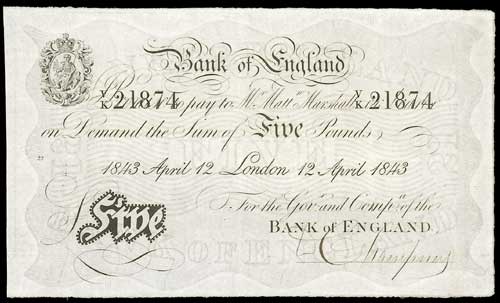 Bank of England
Y/K 21874 Y/K 21874
I Promise to pay to Mr. Mattw. Marshall
on Demand the Sum of Five Pounds
1843 April 12 London 12 April 1843
For the Govr. and Compa. of the
BANK OF ENGLAND
£Five